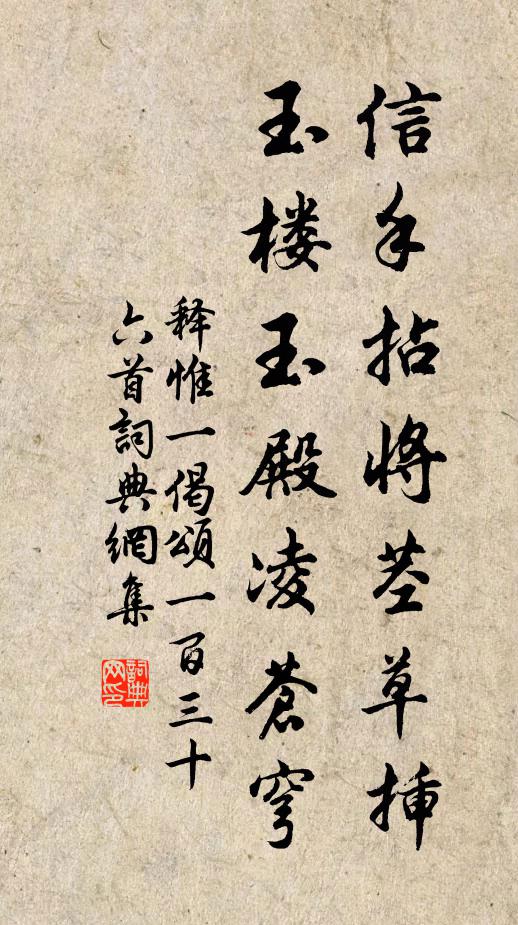 信手拈将茎草插
玉楼玉殿凌苍穹
释惟一偈颂一百三十
六首词典网集
词典网印